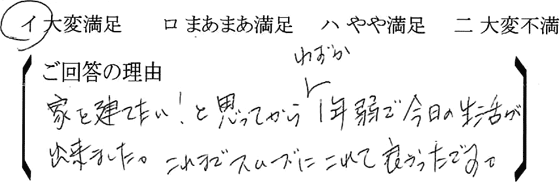 イ 大変満足 ロ まあまあ満足 ハ やや満足 ニ 大変不満
ご回答の理由
わずか
家を建てたい！と思ってから 1年弱で今日の生活が
出来ました。これまでスムーズにこれて良かったです。